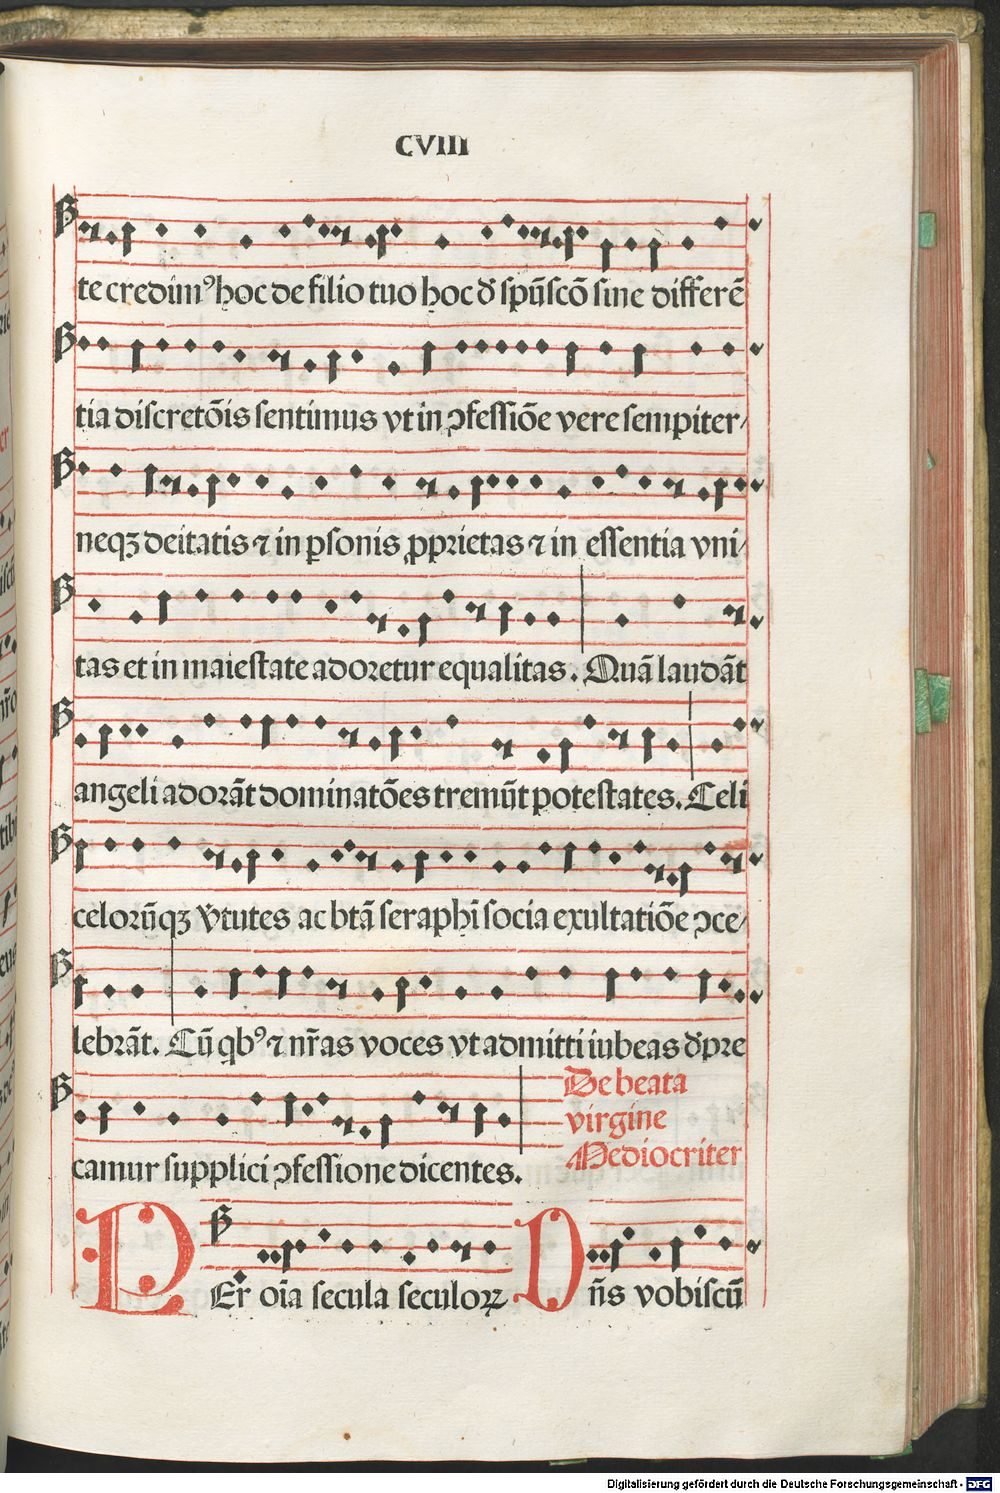 CVIII
te credimꝰ hoc de filio tuo hoc đ spūscō sine differē
tia discretōis sentimus vt in ↄfessiōe vere sempiter/
neqꝫ deitatis ⁊ in ꝑsonis ꝓprietas ⁊ in essentia vni/
tas et in maiestate adoretur equalitas. Quā laudāt
angeli adorāt dominatōes tremūt potestates. Celi
celorūqꝫ v̓tutes ac btā seraphī socia exultatiōe ↄce/
lebrāt. Cū qbꝰ ⁊ nr̄as voces vt admitti iubeas đpre
camur supplici ↄfessione dicentes.
De beata
virgine
Mediocriter
PEr oīa secula seculoꝝ Dn̄s vobiscū
Digitalisierung gefördert durch die Deutsche Forschungsgemeinschaft - DFG